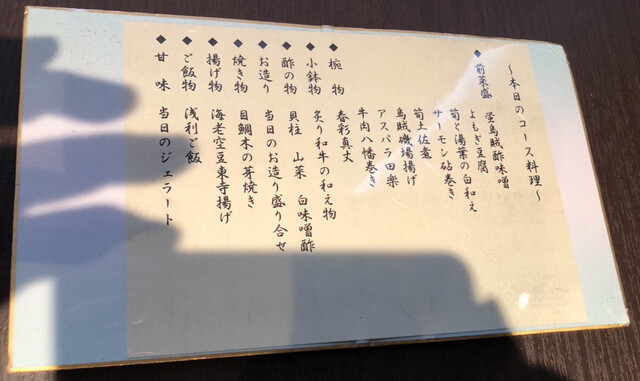 ～本日のコース料理～
◆ 前菜盛 蛍烏賊酢味噌
よもぎ豆腐
筍と湯葉の白和え
サーモン砧巻き
筍土佐煮
烏賊磯場揚げ
アスパラ田楽
牛肉八幡巻き
◆ 椀 物 春彩真丈
◆ 小鉢物 炙り和牛の和え物
◆ 酢の物 貝柱 山菜 白味噌酢
◆ お造り 当日のお造り盛り合せ
◆ 焼き物 目鯛木の芽焼き
◆ 揚げ物 海老空豆東寺揚げ
◆ ご飯物 浅利ご飯
◆ 甘 味 当日のジェラート